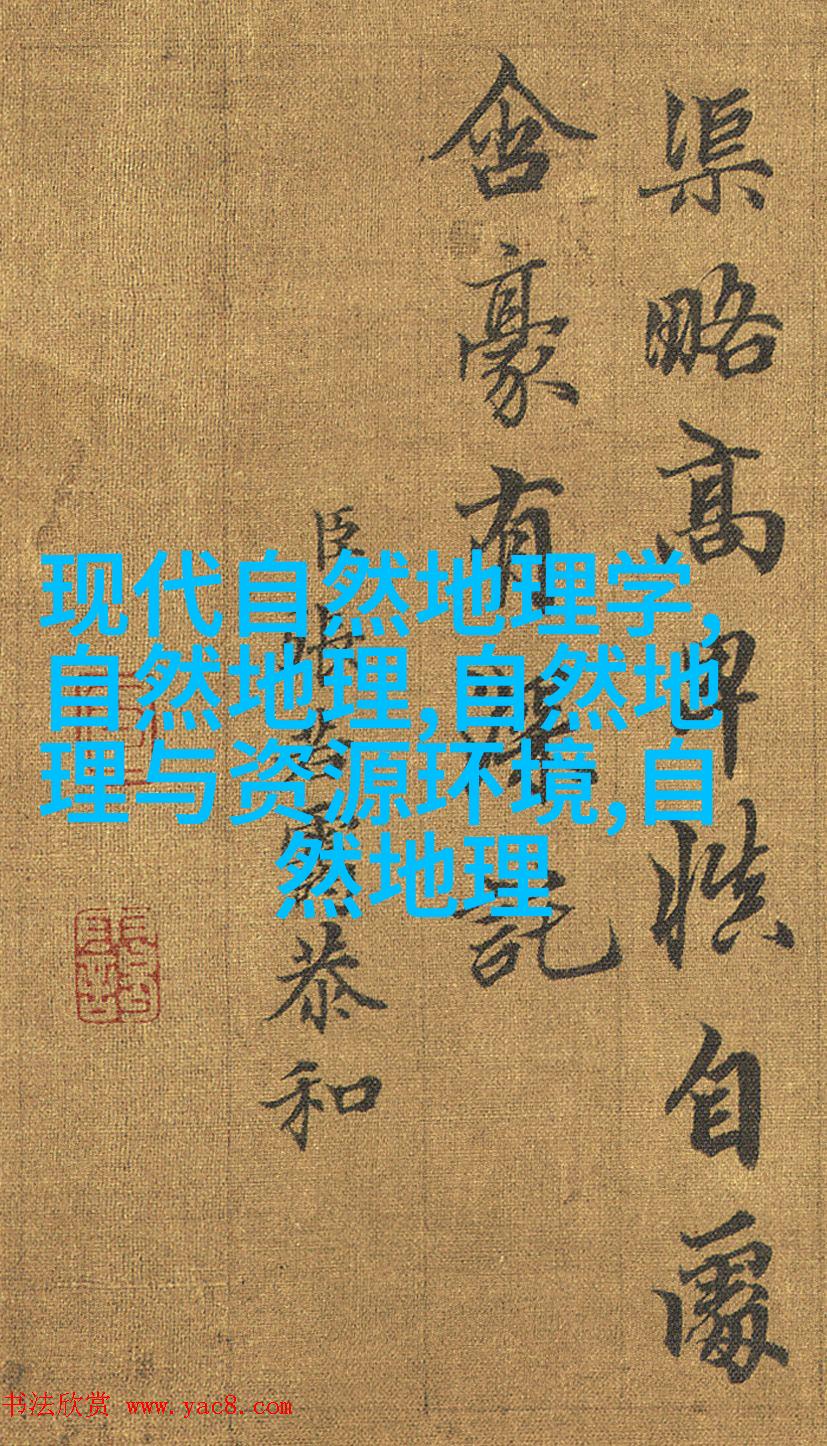 渠略高卑慎自處
含豪有深託
臣張若靄恭和
现代自然地理学,
自然地理,自然地
理与资源环境,自
然地理
书法欣赏 www.yac8.com